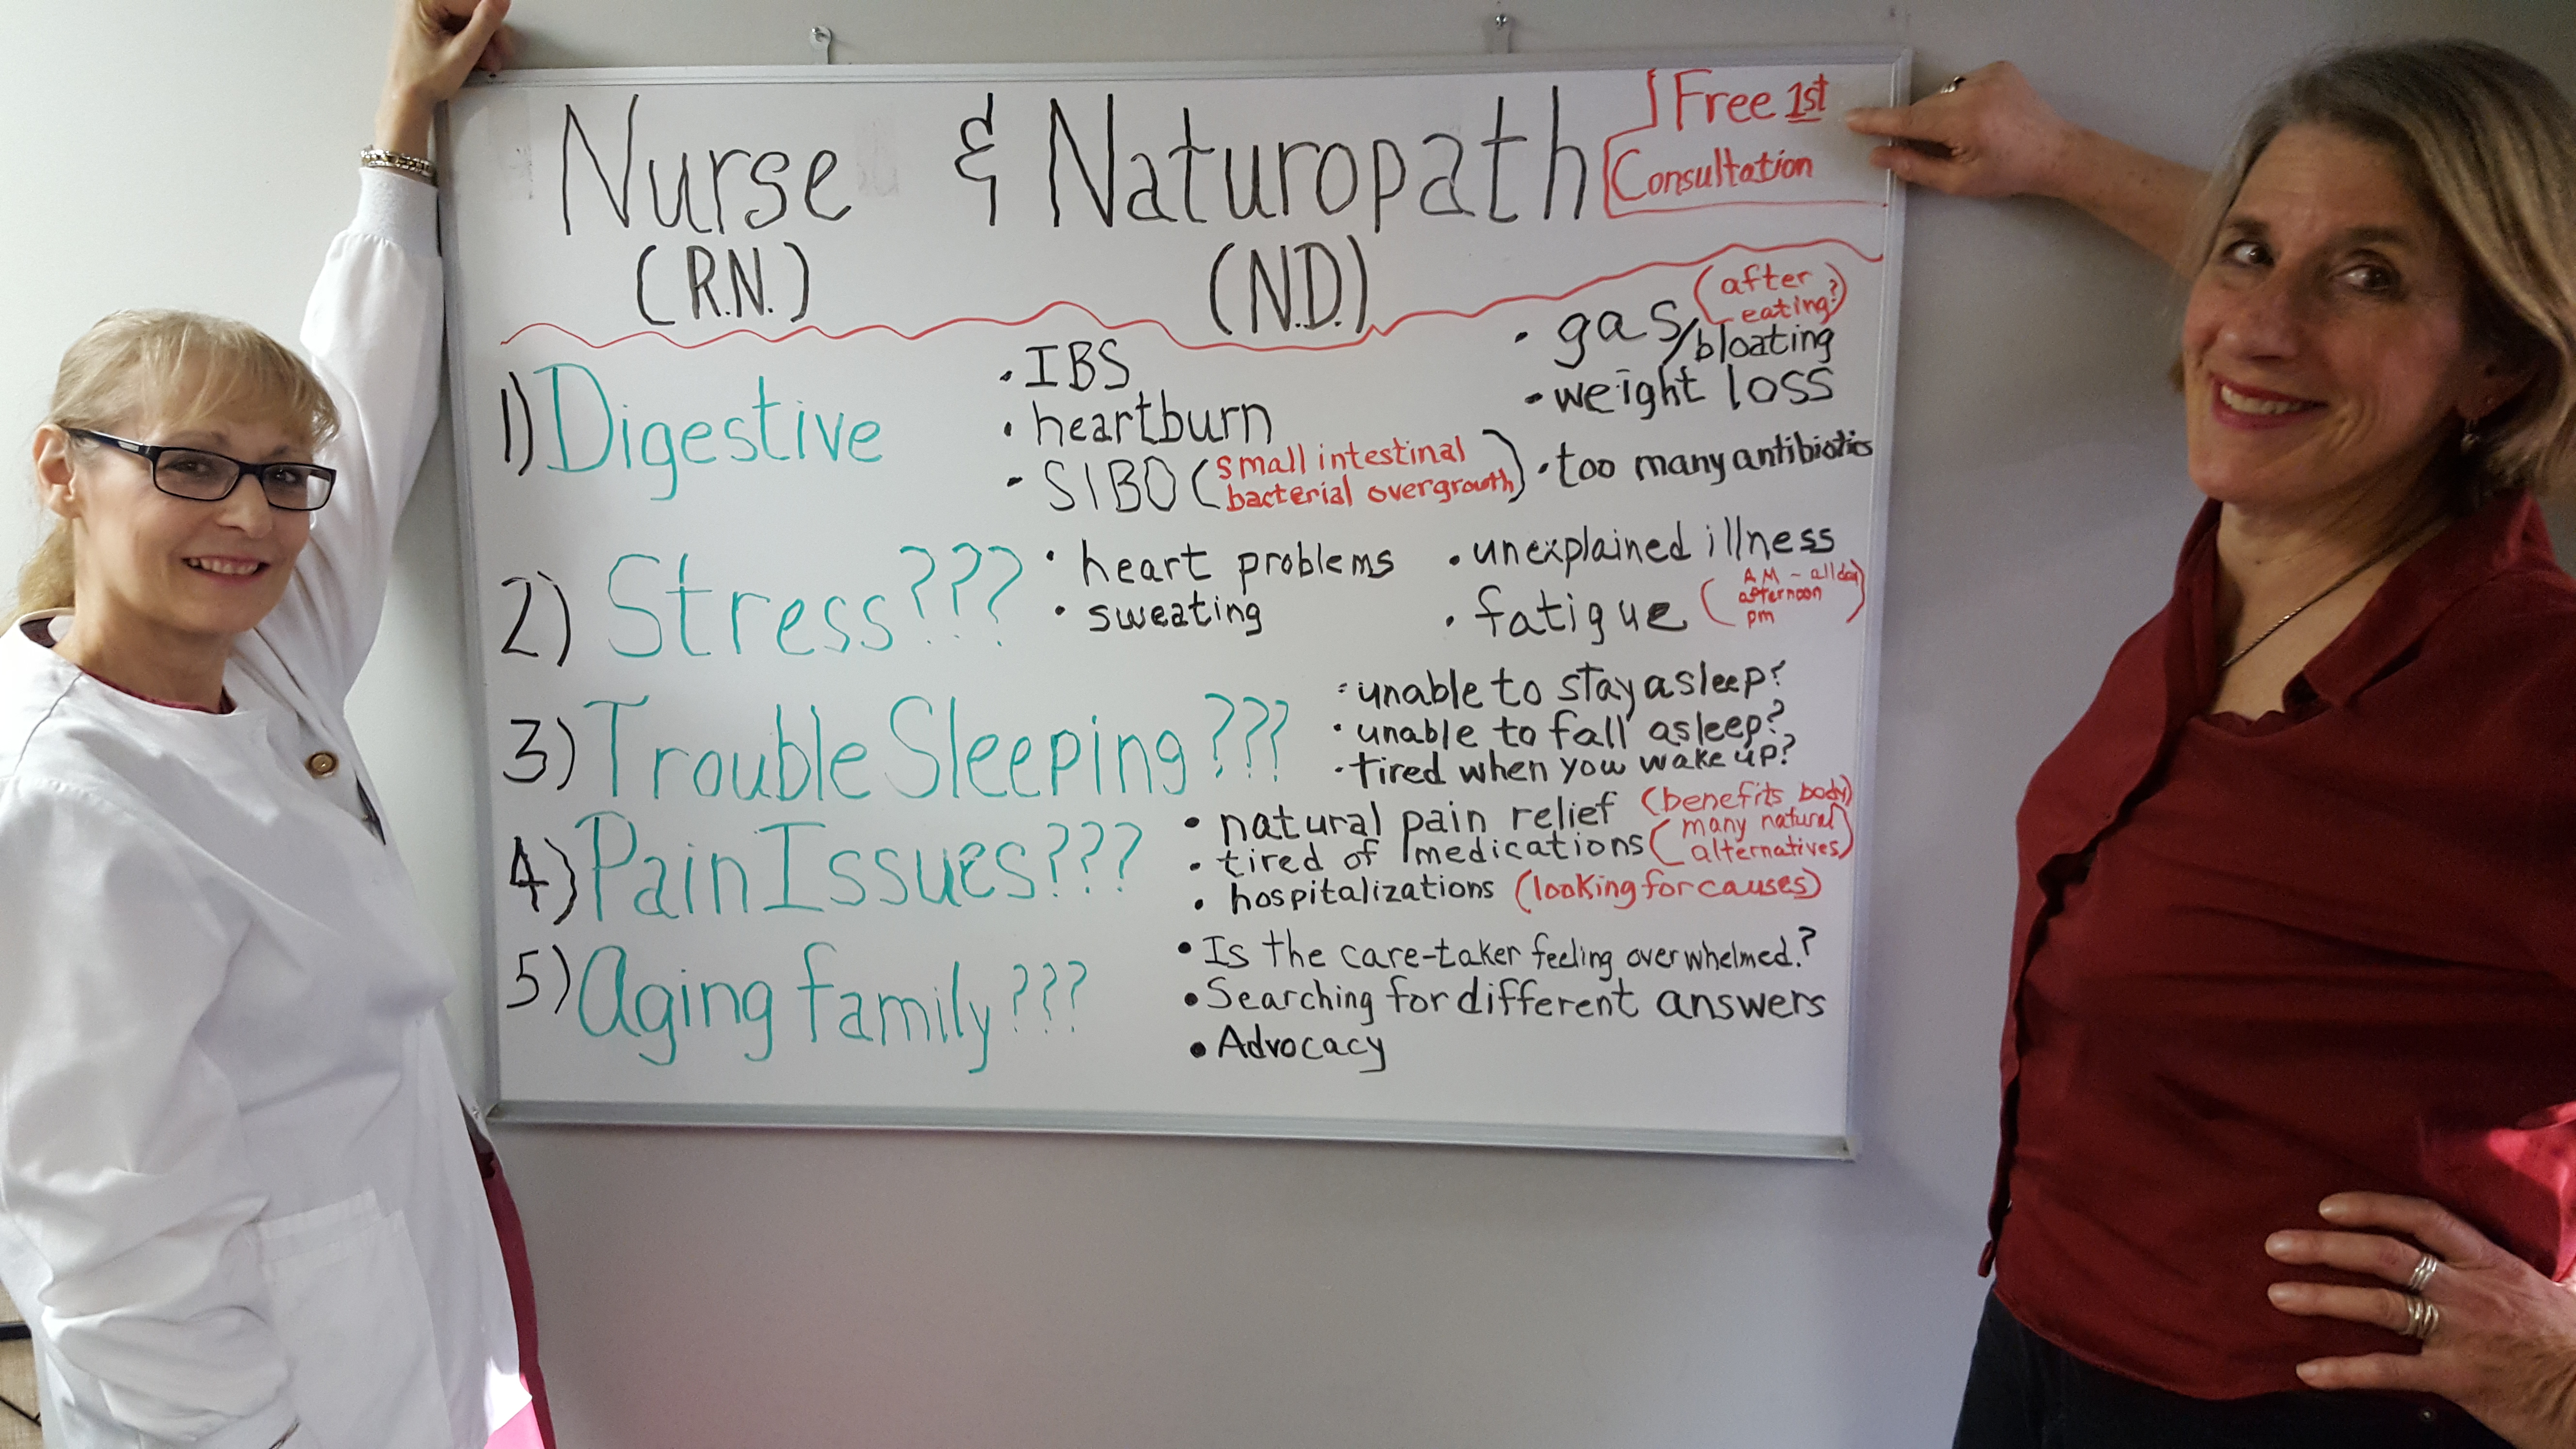 Nurse & Naturopath
Free 1st
Consultation
(R.N.) (N.D.)
1) Digestive
• IBS
• heartburn
- SIBO (small intestinal
bacterial overgrowth)
• gas/bloating
(after
eating?)
• weight loss
• too many antibiotics
2) Stress???
• heart problems
• sweating
• unexplained illness
• fatigue
(AM - all day
afternoon
pm)
3) Trouble Sleeping???
• unable to stay asleep?
• unable to fall asleep?
• tired when you wake up?
4) Pain Issues???
• natural pain relief (benefits body)
• tired of medications (many natural
alternatives)
• hospitalizations (looking for causes)
5) Aging family???
• Is the care-taker feeling overwhelmed.?
• Searching for different answers
• Advocacy